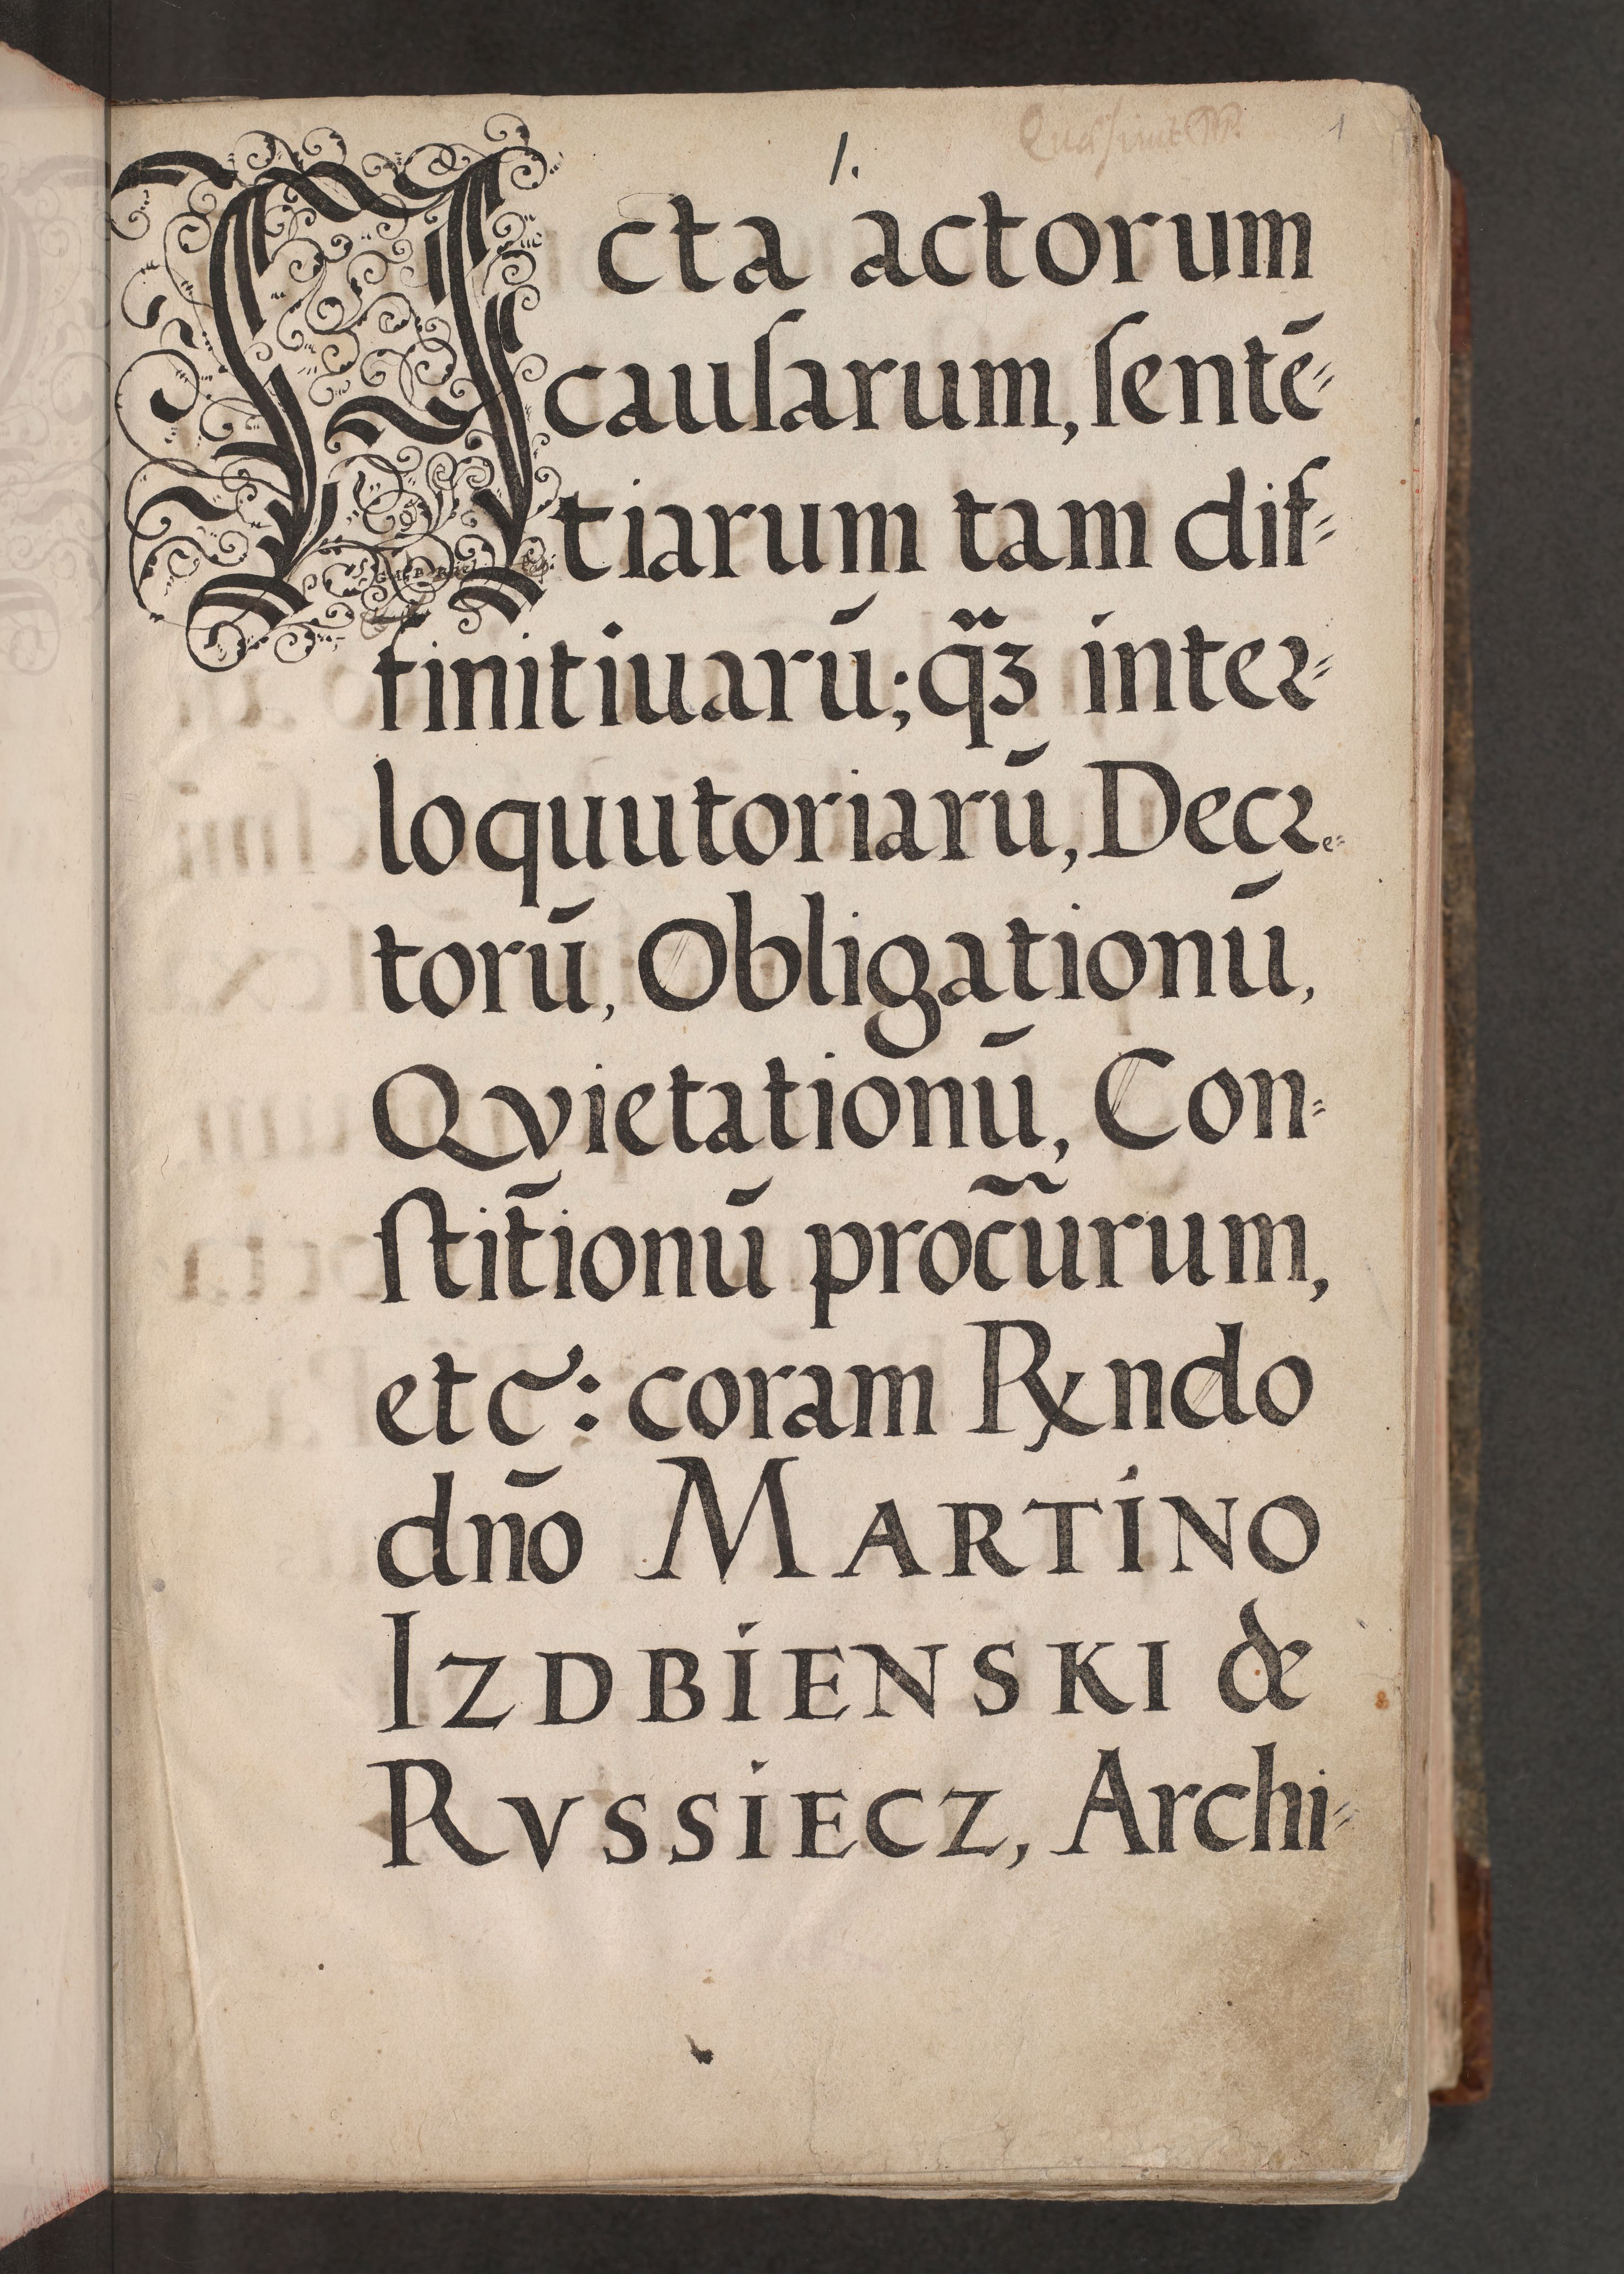 1.
1
Acta actorum
cauſarum, ſentē⸗
tiarum tam dif⸗
finitiuarū; q̃ꝫ inter⸗
loquutoriarū, Decꝛe⸗
torū, Obligationū,
Qvietationū, Con⸗
ſtit̄ionū proc̃urum,
etc̃: coram Rx̣ndo
dno̅ MARTINO
IZDBIENSKI de
RVSSIECZ, Archi⸗